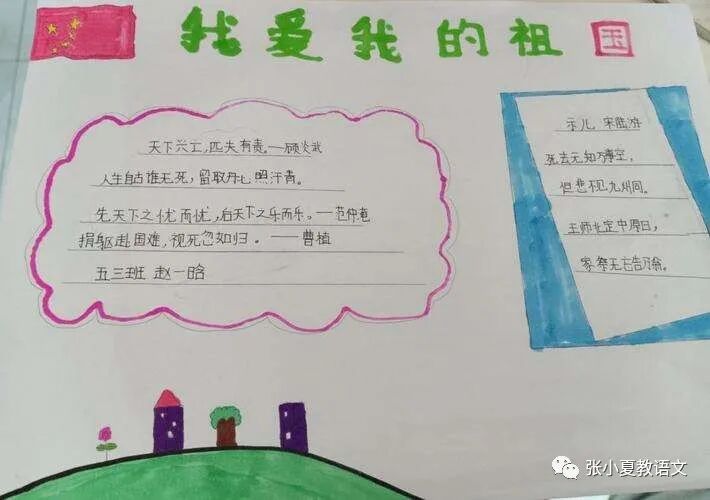 我爱我的祖国
天下兴亡,匹夫有责。——顾炎武
人生自古谁无死,留取丹心照汗青。
先天下之忧而忧,后天下之乐而乐。——范仲淹
捐躯赴国难,视死忽如归。——曹植
五三班 赵一晗
示儿 宋陆游
死去元知万事空,
但悲不见九州同。
王师北定中原日,
家祭无忘告乃翁。
张小夏教语文